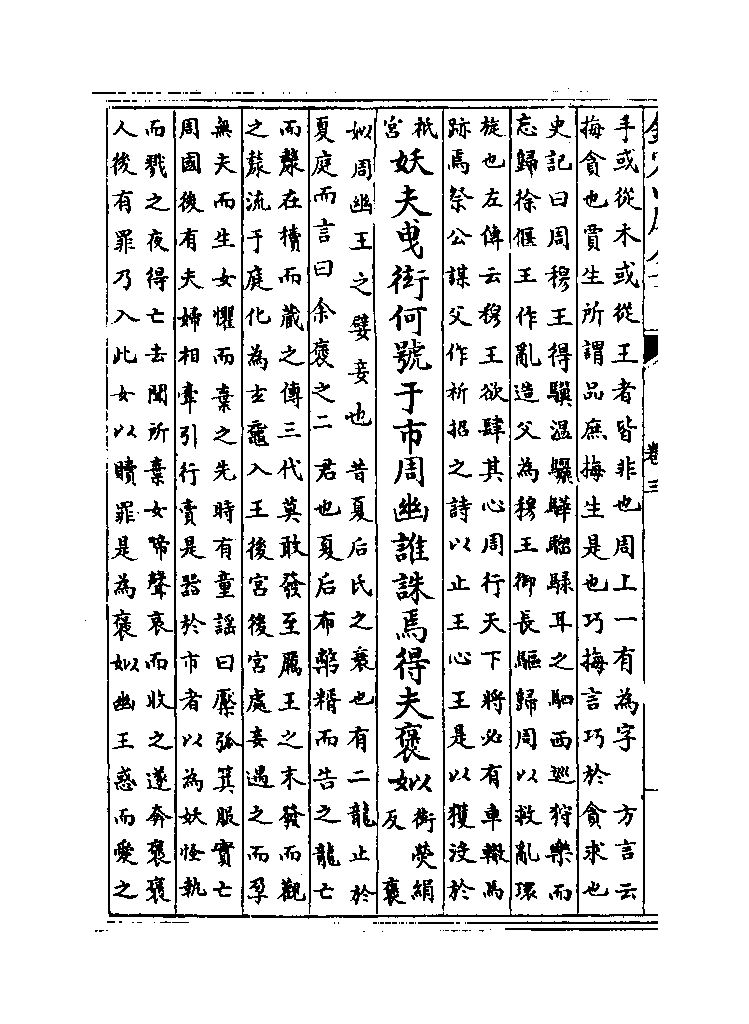 卷三
手或從木或從王者皆非也周上一有為字　方言云
梅貪也賈生所謂品庶梅生是也巧梅言巧於貪求也
史記曰周穆王得驥溫驪驊騮騄耳之駟西巡狩樂而
忘歸徐偃王作亂造父為穆王御長驅歸周以救亂環
旋也左傳云穆王欲肆其心周行天下將必有車轍馬
跡焉祭公謀父作祈招之詩以止王心王是以獲沒於
祇宮妖夫曵衒何號于市周幽誰誅焉得夫褒姒衒熒絹反　褒
姒周幽王之嬖妾也　昔夏后氏之衰也有二龍止於
夏庭而言曰余褒之二君也夏后布幣糈而告之龍亡
而漦在櫝而藏之傳三代莫敢發至厲王之末發而觀
之漦流于庭化為玄黿入王後宮後宮處妾遇之而孕
無夫而生女懼而棄之先時有童謡曰檿弧箕服實亡
周國後有夫婦相牽引行賣是器於市者以為妖怪執
而戮之夜得亡去聞所棄女啼聲哀而收之遂奔褒褒
人後有罪乃入此女以贖罪是為褒姒幽王惑而愛之